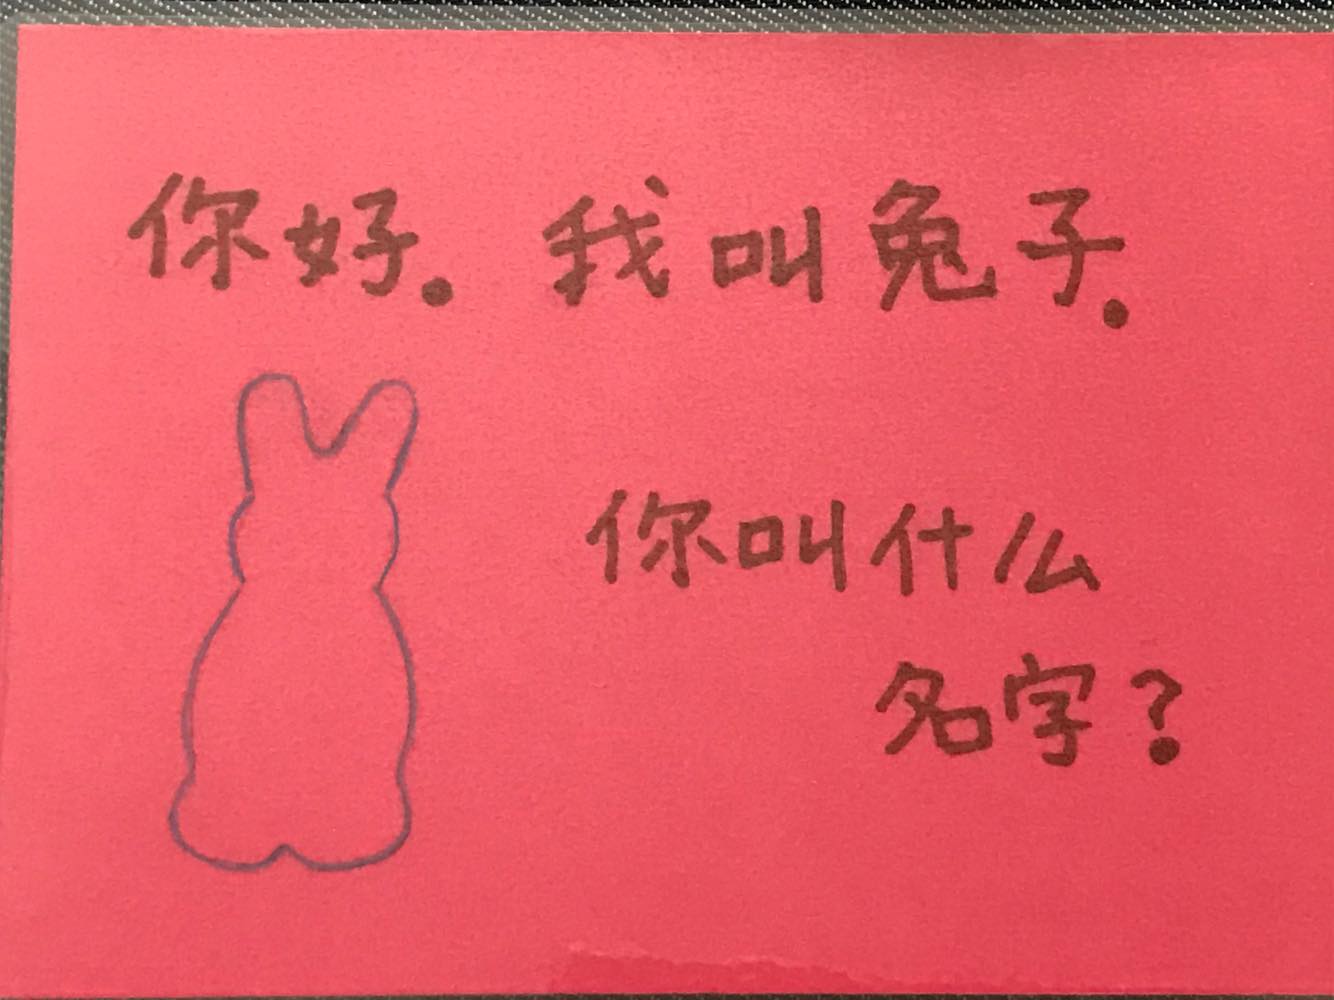 你好. 我叫兔子.
你叫什么
名字?